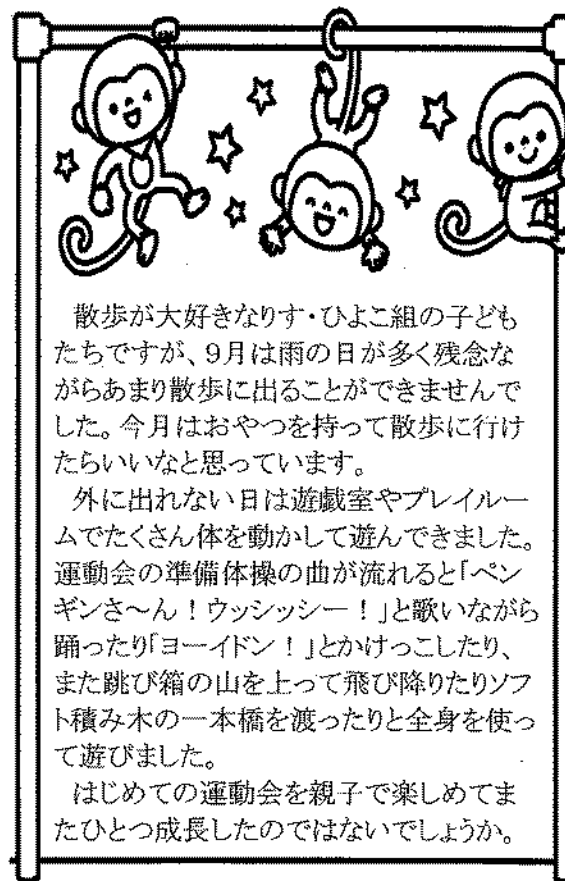 散歩が大好きなりす・ひよこ組の子ども
たちですが、9月は雨の日が多く残念な
がらあまり散歩に出ることができませんで
した。今月はおやつを持って散歩に行け
たらいいなと思っています。
外に出れない日は遊戯室やプレイルー
ムでたくさん体を動かして遊んできました。
運動会の準備体操の曲が流れると「ペン
ギンさ~ん!ウッシッシー!」と歌いながら
踊ったり「ヨーイドン!」とかけっこしたり、
また跳び箱の山を上って飛び降りたりソフ
ト積み木の一本橋を渡ったりと全身を使っ
て遊びました。
はじめての運動会を親子で楽しめてま
たひとつ成長したのではないでしょうか。